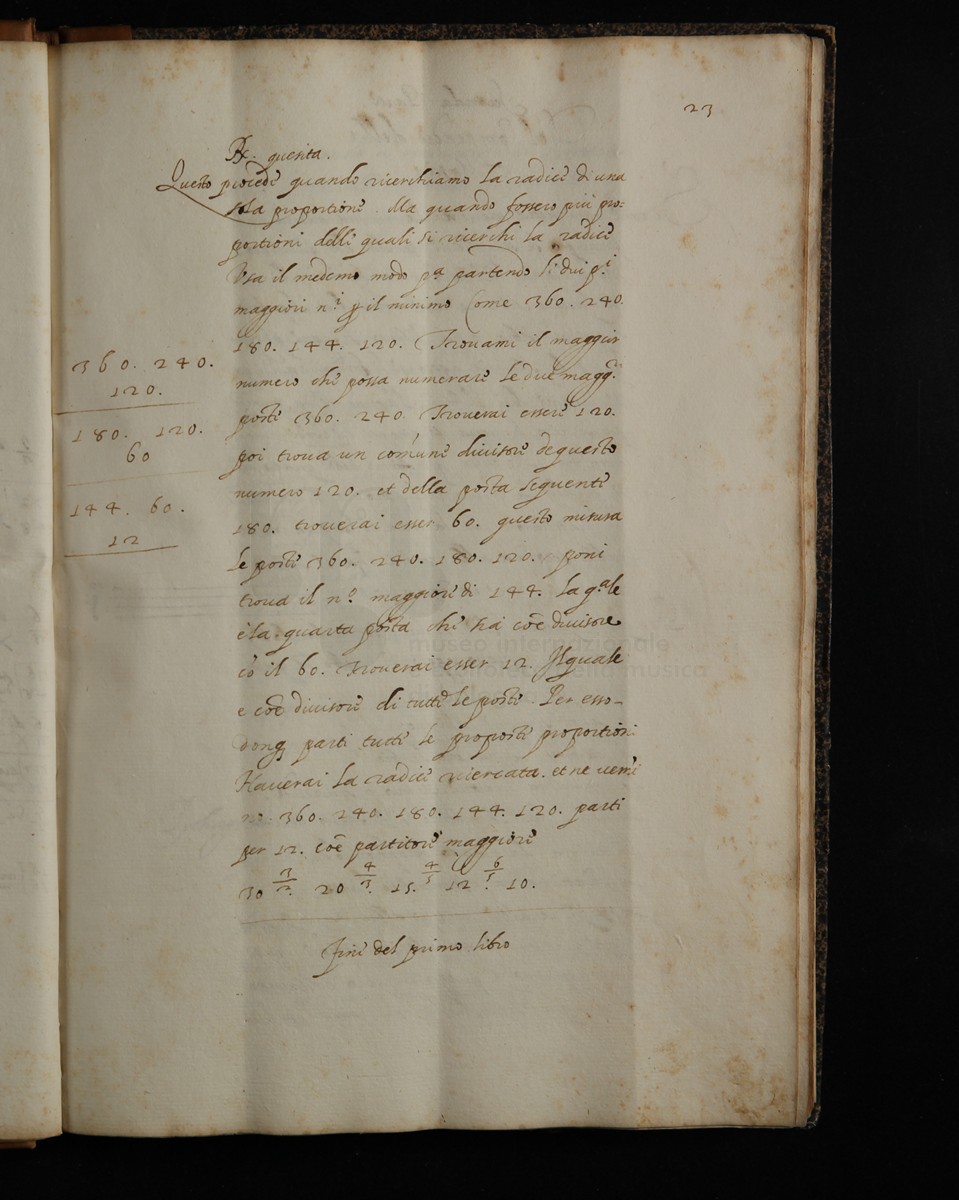 23
R. quesita.
Questo procede quando ricerchiamo la radice di una
sola proportione. Ma quando fossero più pro=
portioni delli quali si ricerchi la radice
Usa il medemo modo p.ª partendo li dui p.i
maggiori n.i p il minimo Come 360. 240.
180. 144. 120. Trouami il maggior
numero che possa numerare le due magg.ri
poste 360. 240. Trouerai essere 120.
poi troua un comune diuisore de questo
numero 120. et della posta seguente
180. trouerai esser 60. questo misura
le poste 360. 240. 180. 120. poni
troua il n.º maggiore di 144. la q.ale
è la quarta posta che hà coe diuisore
cò il 60. Trouerai esser 12. Il quale
e coe diuisore di tutte le poste. Per esso
donq parti tutte le proposte proportioni
Hauerai la radice ricercata. et ne uerrà
360. 240. 180. 144. 120. parti
per 12. coe partitore maggiore
30 3/2. 20 4/3. 15. 4/5 12 6/5. 10.
Fine del primo libro
360. 240.
120.
180. 120.
60
144. 60.
12
museo internazionale
della musica